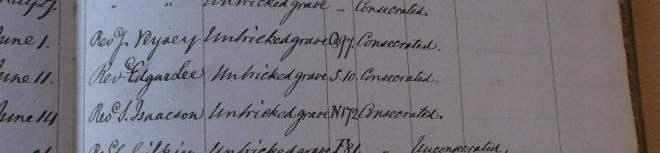 " " Unbricked grave " Consecrated.
June 1. Rev J. Veysey Unbricked grave Q97. Consecrated.
June 11. Revd Edgar Lee Unbricked grave S.10. Consecrated.
June 14 Revd S. Isaacson Unbricked grave N172 Consecrated.
F81 " Unconsecrated.